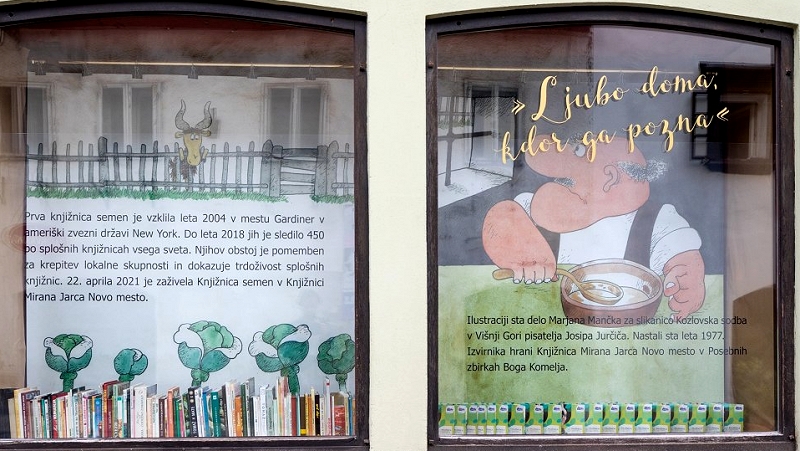 Prva knjižnica semen je vzklila leta 2004 v mestu Gardiner v
ameriški zvezni državi New York. Do leta 2018 jih je sledilo 450
po splošnih knjižnicah vsega sveta. Njihov obstoj je pomemben
za krepitev lokalne skupnosti in dokazuje trdoživost splošnih
knjižnic. 22. aprila 2021 je zaživela Knjižnica semen v Knjižnici
Mirana Jarca Novo mesto.
»Ljubo doma,
kdor ga pozna«
Ilustraciji sta delo Marjana Mančka za slikanico Kozlovska sodba
v Višnji Gori pisatelja Josipa Jurčiča. Nastali sta leta 1977.
Izvirnika hrani Knjižnica Mirana Jarca Novo mesto v Posebnih
zbirkah Boga Komelja.